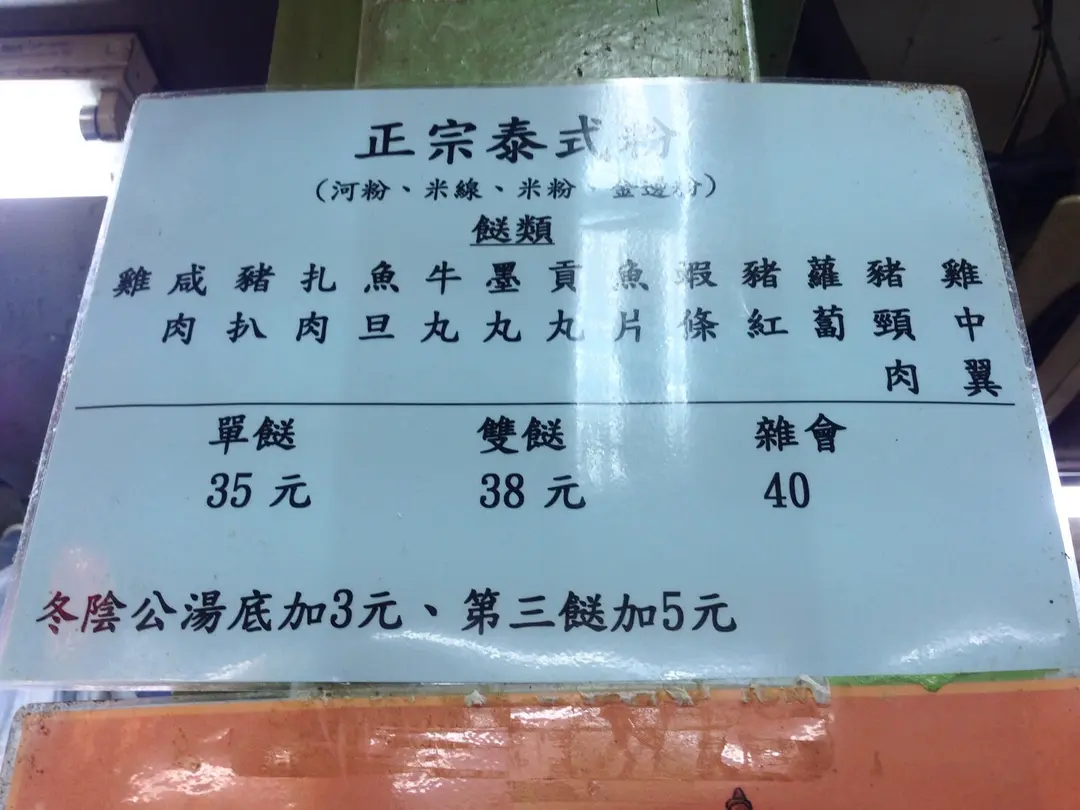 正宗泰式粉
(河粉、米線、米粉、金邊粉)
餸類
雞 咸肉 豬扒 扎肉 魚旦 牛丸 墨丸 貢丸 魚片 蝦條 豬紅 蘿蔔 豬頸肉 雞中翼
單餸 雙餸 雜會
35元 38元 40
冬陰公湯底加3元、第三餸加5元